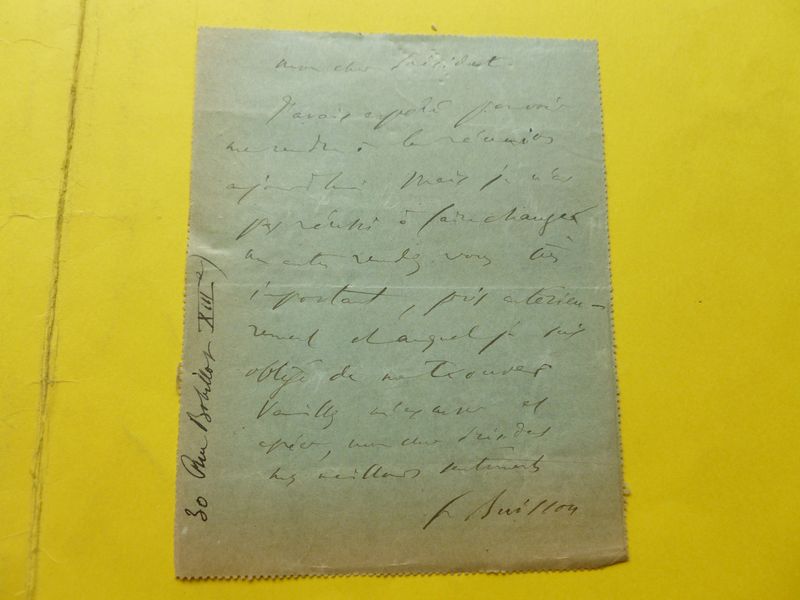 mon cher Président.
J'avais espéré pouvoir
me rendre à la réunion
aujourd'hui Mais je n'ai
pas réussi à faire changer
un autre rendez vous très
important, pris antérieu-
rement et auquel je suis
obligé de me trouver
Veuillez m'excuser et
agréer, mon cher Président
mes meilleurs sentiments
F Buisson
30 Rue Bobillot XIIIe)